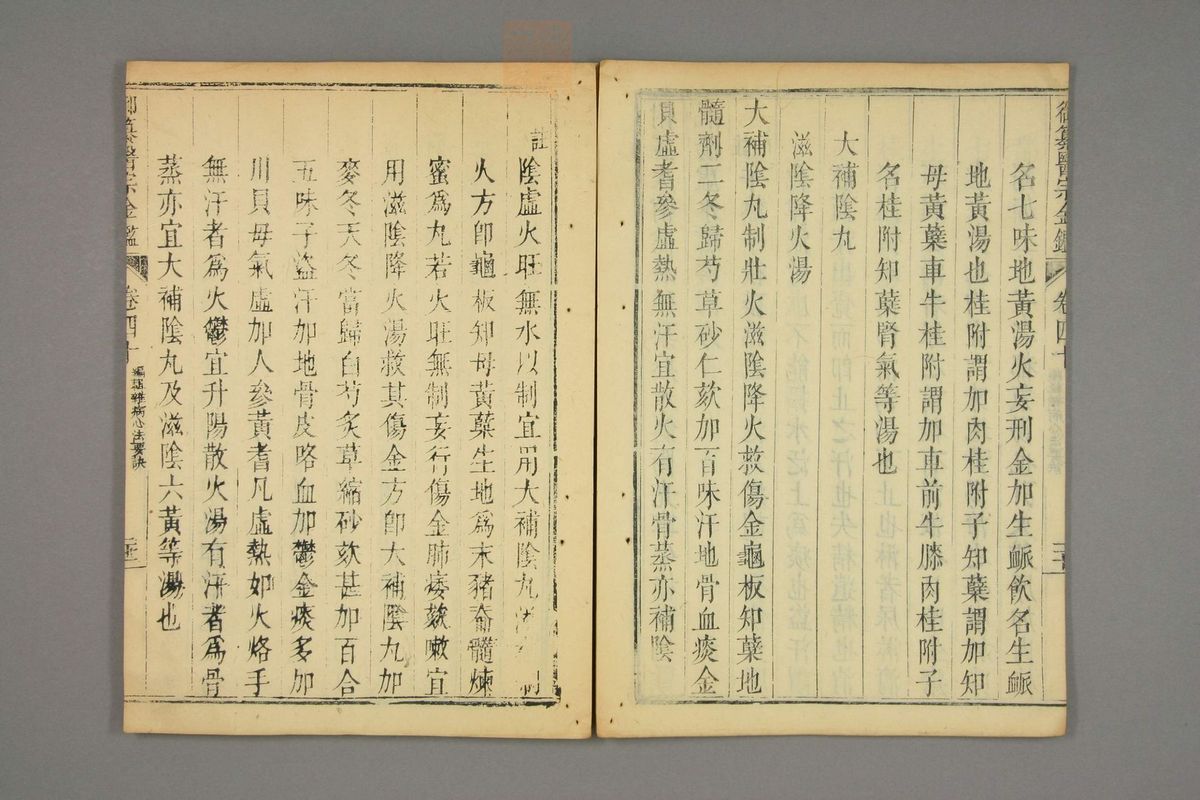 御纂醫宗金鑑 卷四十
名七味地黃湯火妄刑金加生脈飲名生脈
地黃湯也桂附謂加肉桂附子知蘗謂加知
母黃蘗車牛桂附謂加車前牛膝肉桂附子
名桂附知蘗腎氣等湯也
大補陰丸
滋陰降火湯
大補陰丸制壯火滋陰降火救傷金龜板知蘗地
髓劑二冬歸芍草砂仁欬加百味汗地骨血痰金
貝虛耆參虛熱無汗宜散火有汗骨蒸亦補陰
註
陰虛火旺無水以制宜用大補陰丸
火方卽龜板知母黃蘗生地爲末猪脊髓煉
蜜爲丸若火旺無制妄行傷金肺痿欬嗽宜
用滋陰降火湯救其傷金方卽大補陰丸加
麥冬天冬當歸白芍炙草縮砂欬甚加百合
五味子盜汗加地骨皮咯血加鬱金痰多加
川貝母氣虛加人參黃耆凡虛熱如火烙手
無汗者爲火鬱宜升陽散火湯有汗者爲骨
蒸亦宜大補陰丸及滋陰六黃等湯也
御纂醫宗金鑑 卷四十 編輯雜病心法要訣